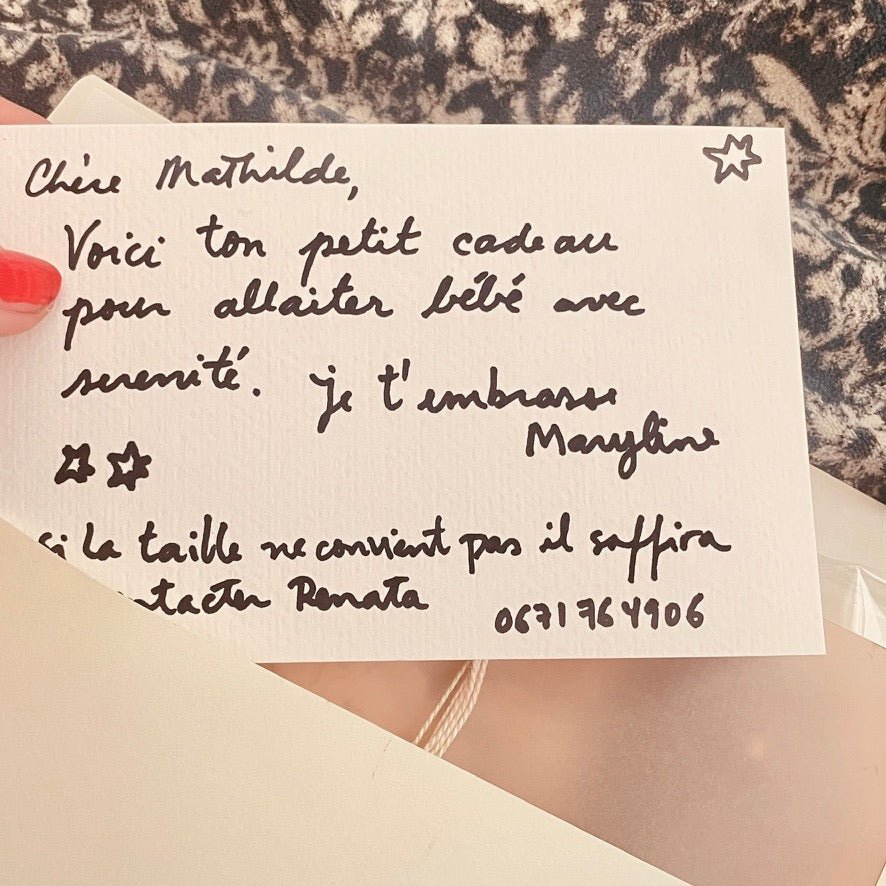 Chère Mathilde,
Voici ton petit cadeau
pour allaiter bébé avec
serenité. je t'embrasse
Maryline
si la taille ne convient pas il suffira
ntacter Renata 0671764906